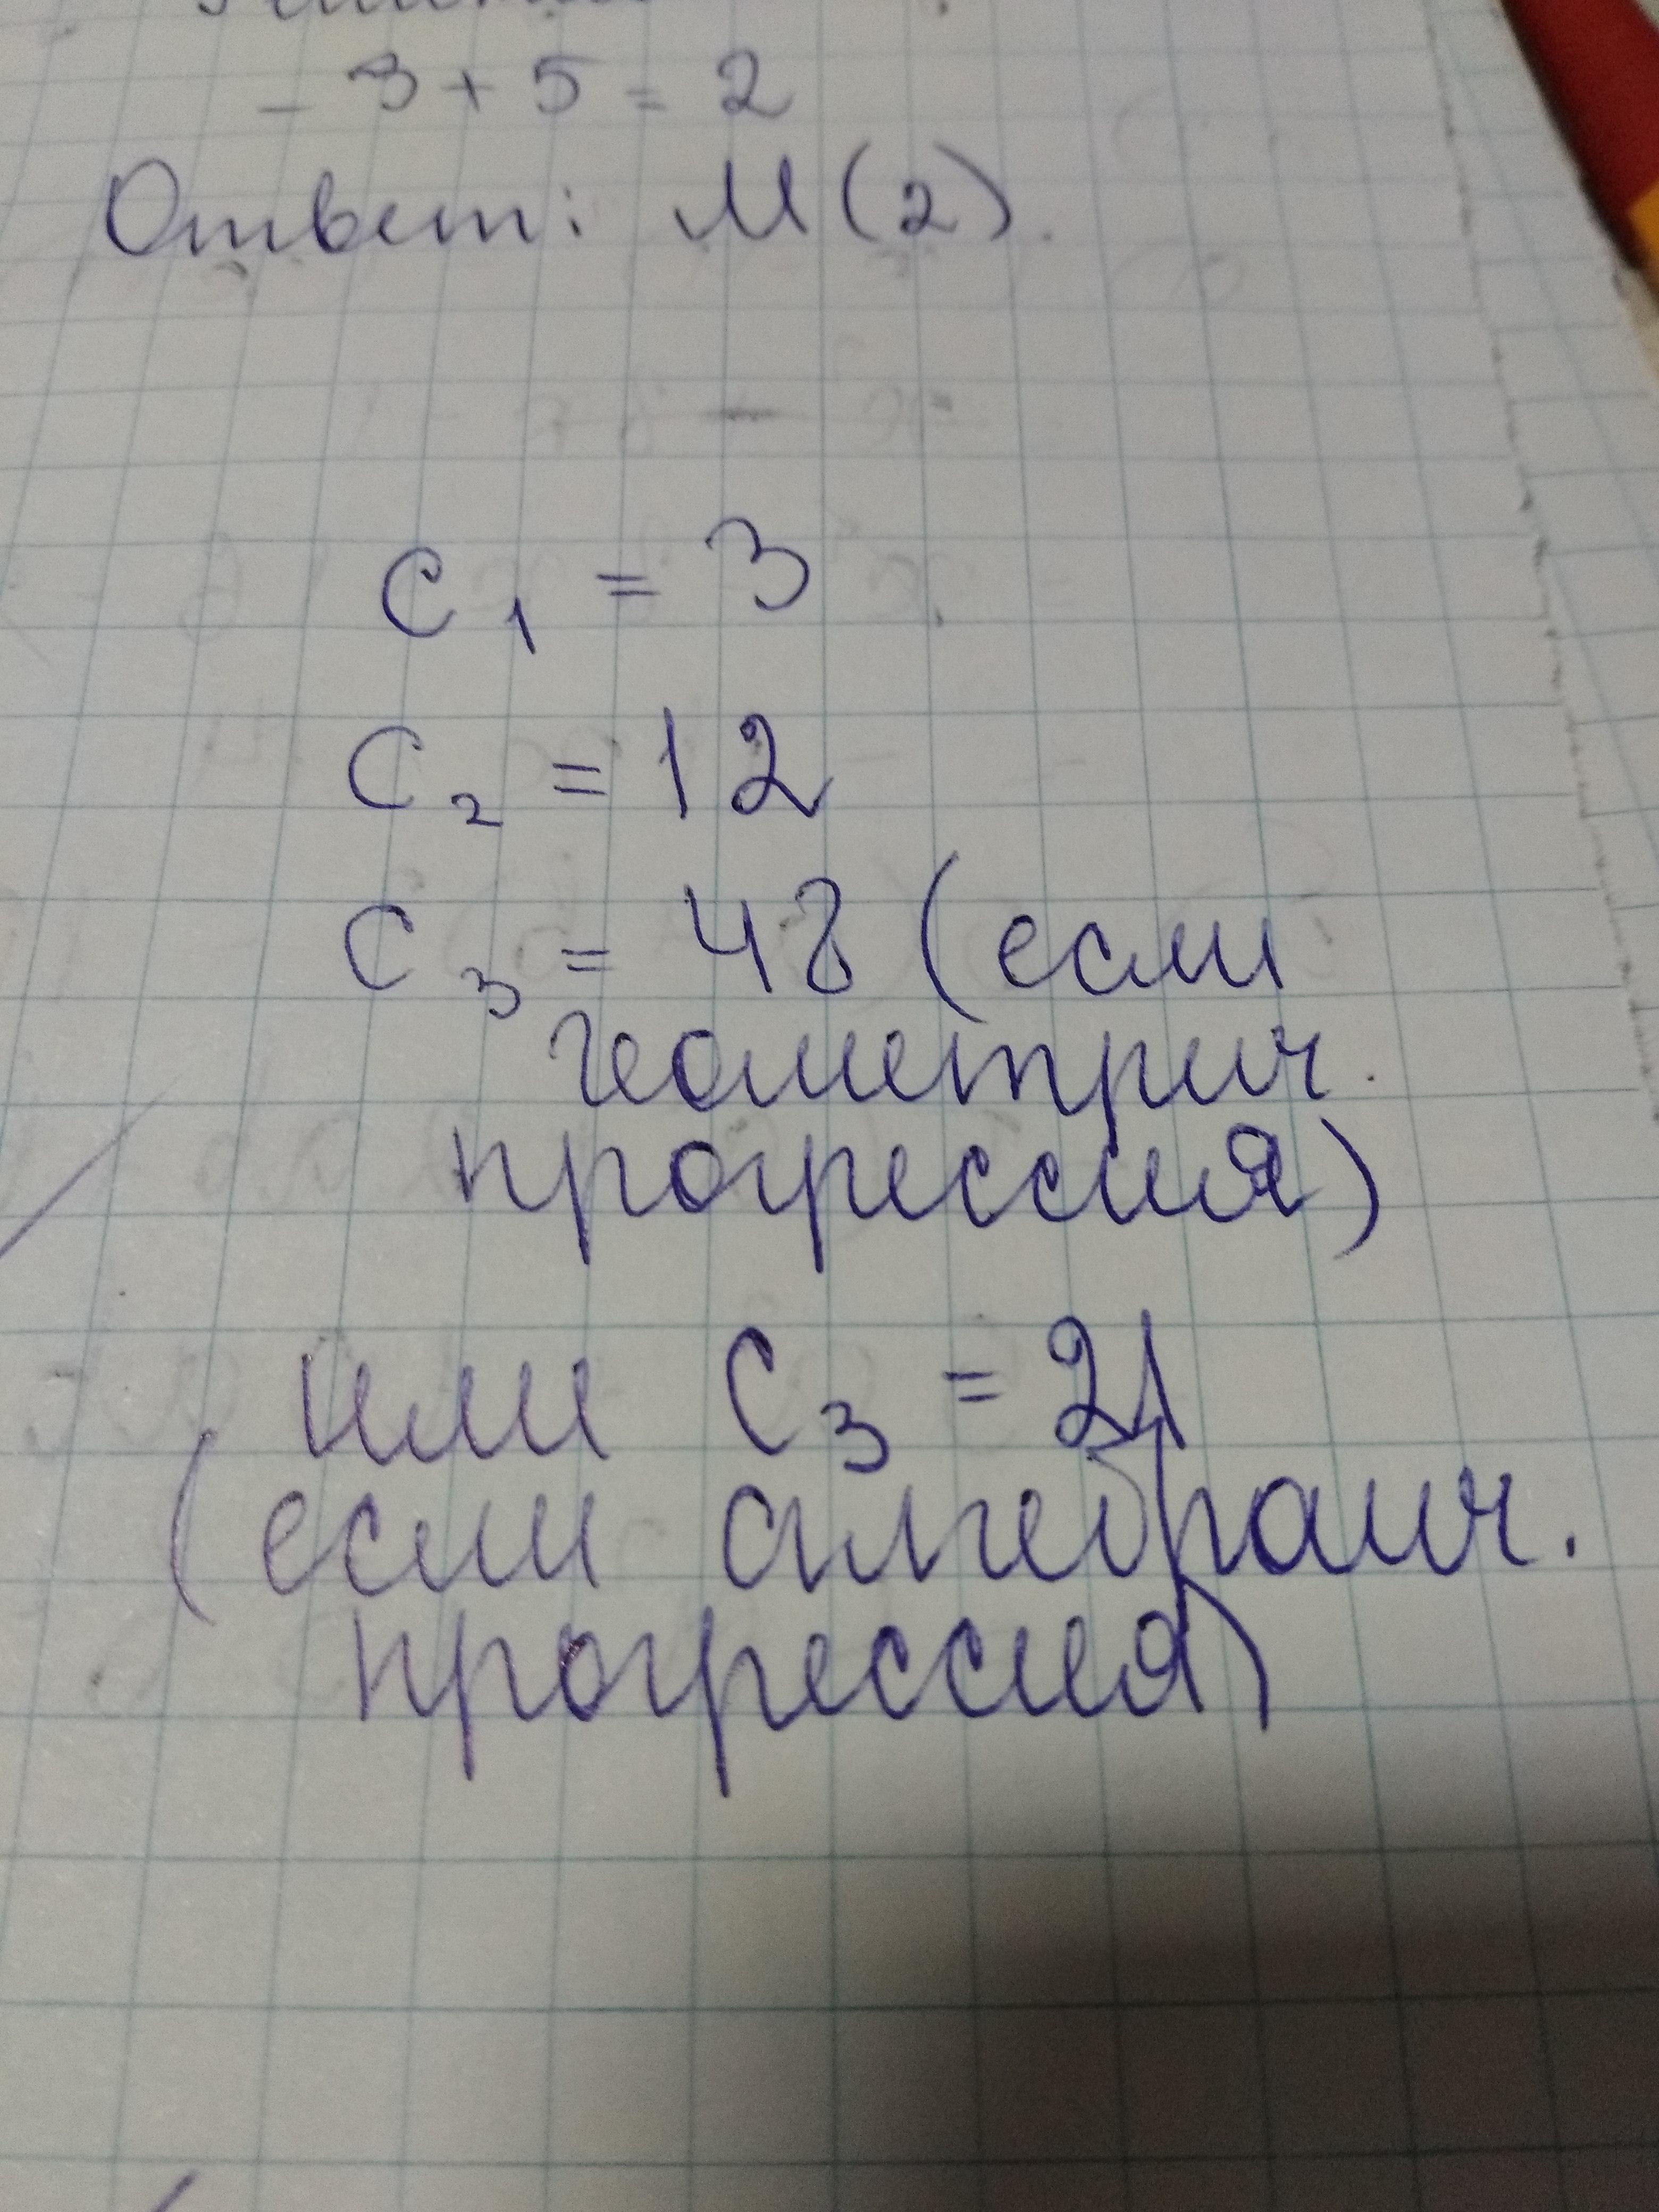 - 3 + 5 = 2
Ответ: М(2).
C₁ = 3
C₂ = 12
C₃ = 48 (если
геометрич.
прогрессия)
или C₃ = 21
(если алгебраич.
прогрессия)